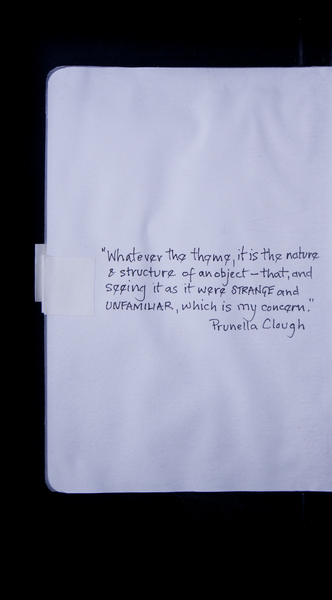 "Whatever the theme, it is the nature
& structure of an object – that, and
seeing it as it were STRANGE and
UNFAMILIAR, which is my concern."
Prunella Clough